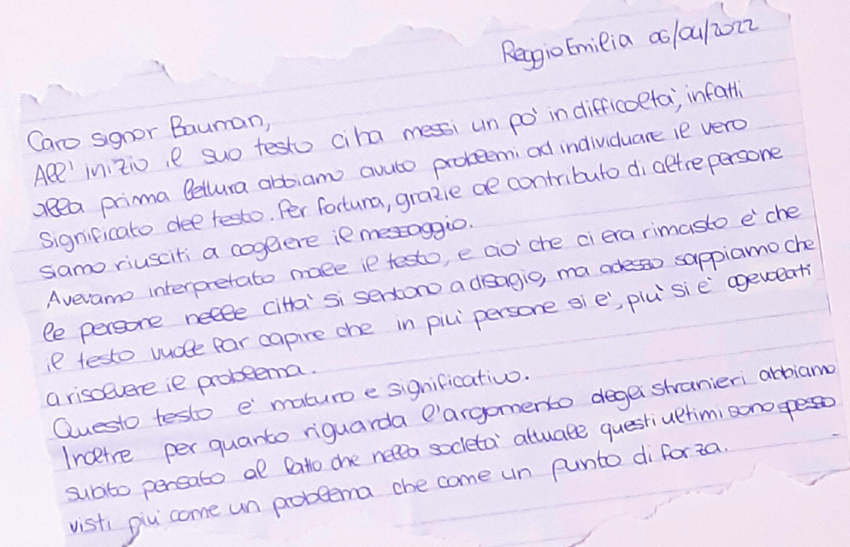 Reggio Emilia 06/04/2022
Caro signor Bauman,
All' inizio il suo testo ci ha messi un po' in difficoltà, infatti
alla prima lettura abbiamo avuto problemi ad individuare il vero
significato del testo. Per fortuna, grazie al contributo di altre persone
siamo riusciti a cogliere il messaggio.
Avevamo interpretato male il testo, e ciò che ci era rimasto è che
le persone nelle città si sentono a disagio, ma adesso sappiamo che
il testo vuole far capire che in più persone si è, più si è agevolati
a risolvere il problema.
Questo testo è maturo e significativo.
Inoltre per quanto riguarda l'argomento degli stranieri abbiamo
subito pensato al fatto che nella società attuale questi ultimi sono spesso
visti più come un problema che come un punto di forza.